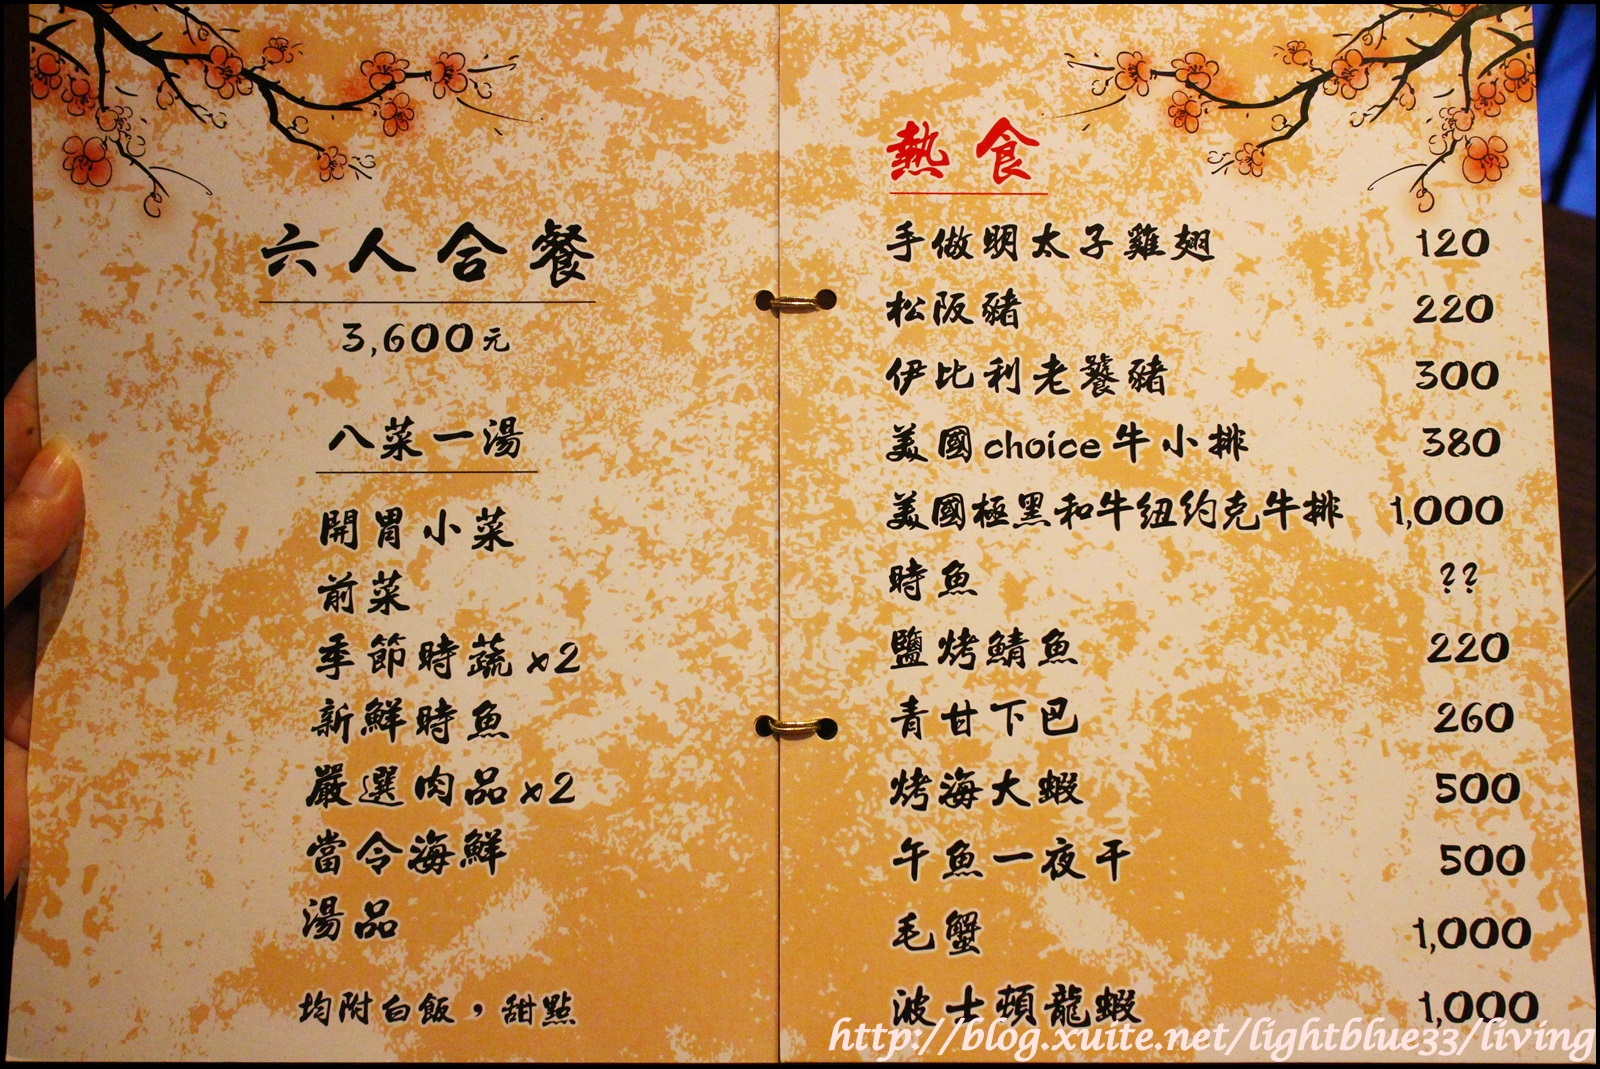 六人合餐
3,600元
八菜一湯
開胃小菜
前菜
季節時蔬x2
新鮮時魚
嚴選肉品x2
當令海鮮
湯品
均附白飯，甜點
熱食
手做明太子雞翅 120
松阪豬 220
伊比利老饕豬 300
美國choice牛小排 380
美國極黑和牛紐約克牛排 1,000
時魚 ??
鹽烤鯖魚 220
青甘下巴 260
烤海大蝦 500
午魚一夜干 500
毛蟹 1,000
波士頓龍蝦 1,000
http://blog.xuite.net/lightblue33/living